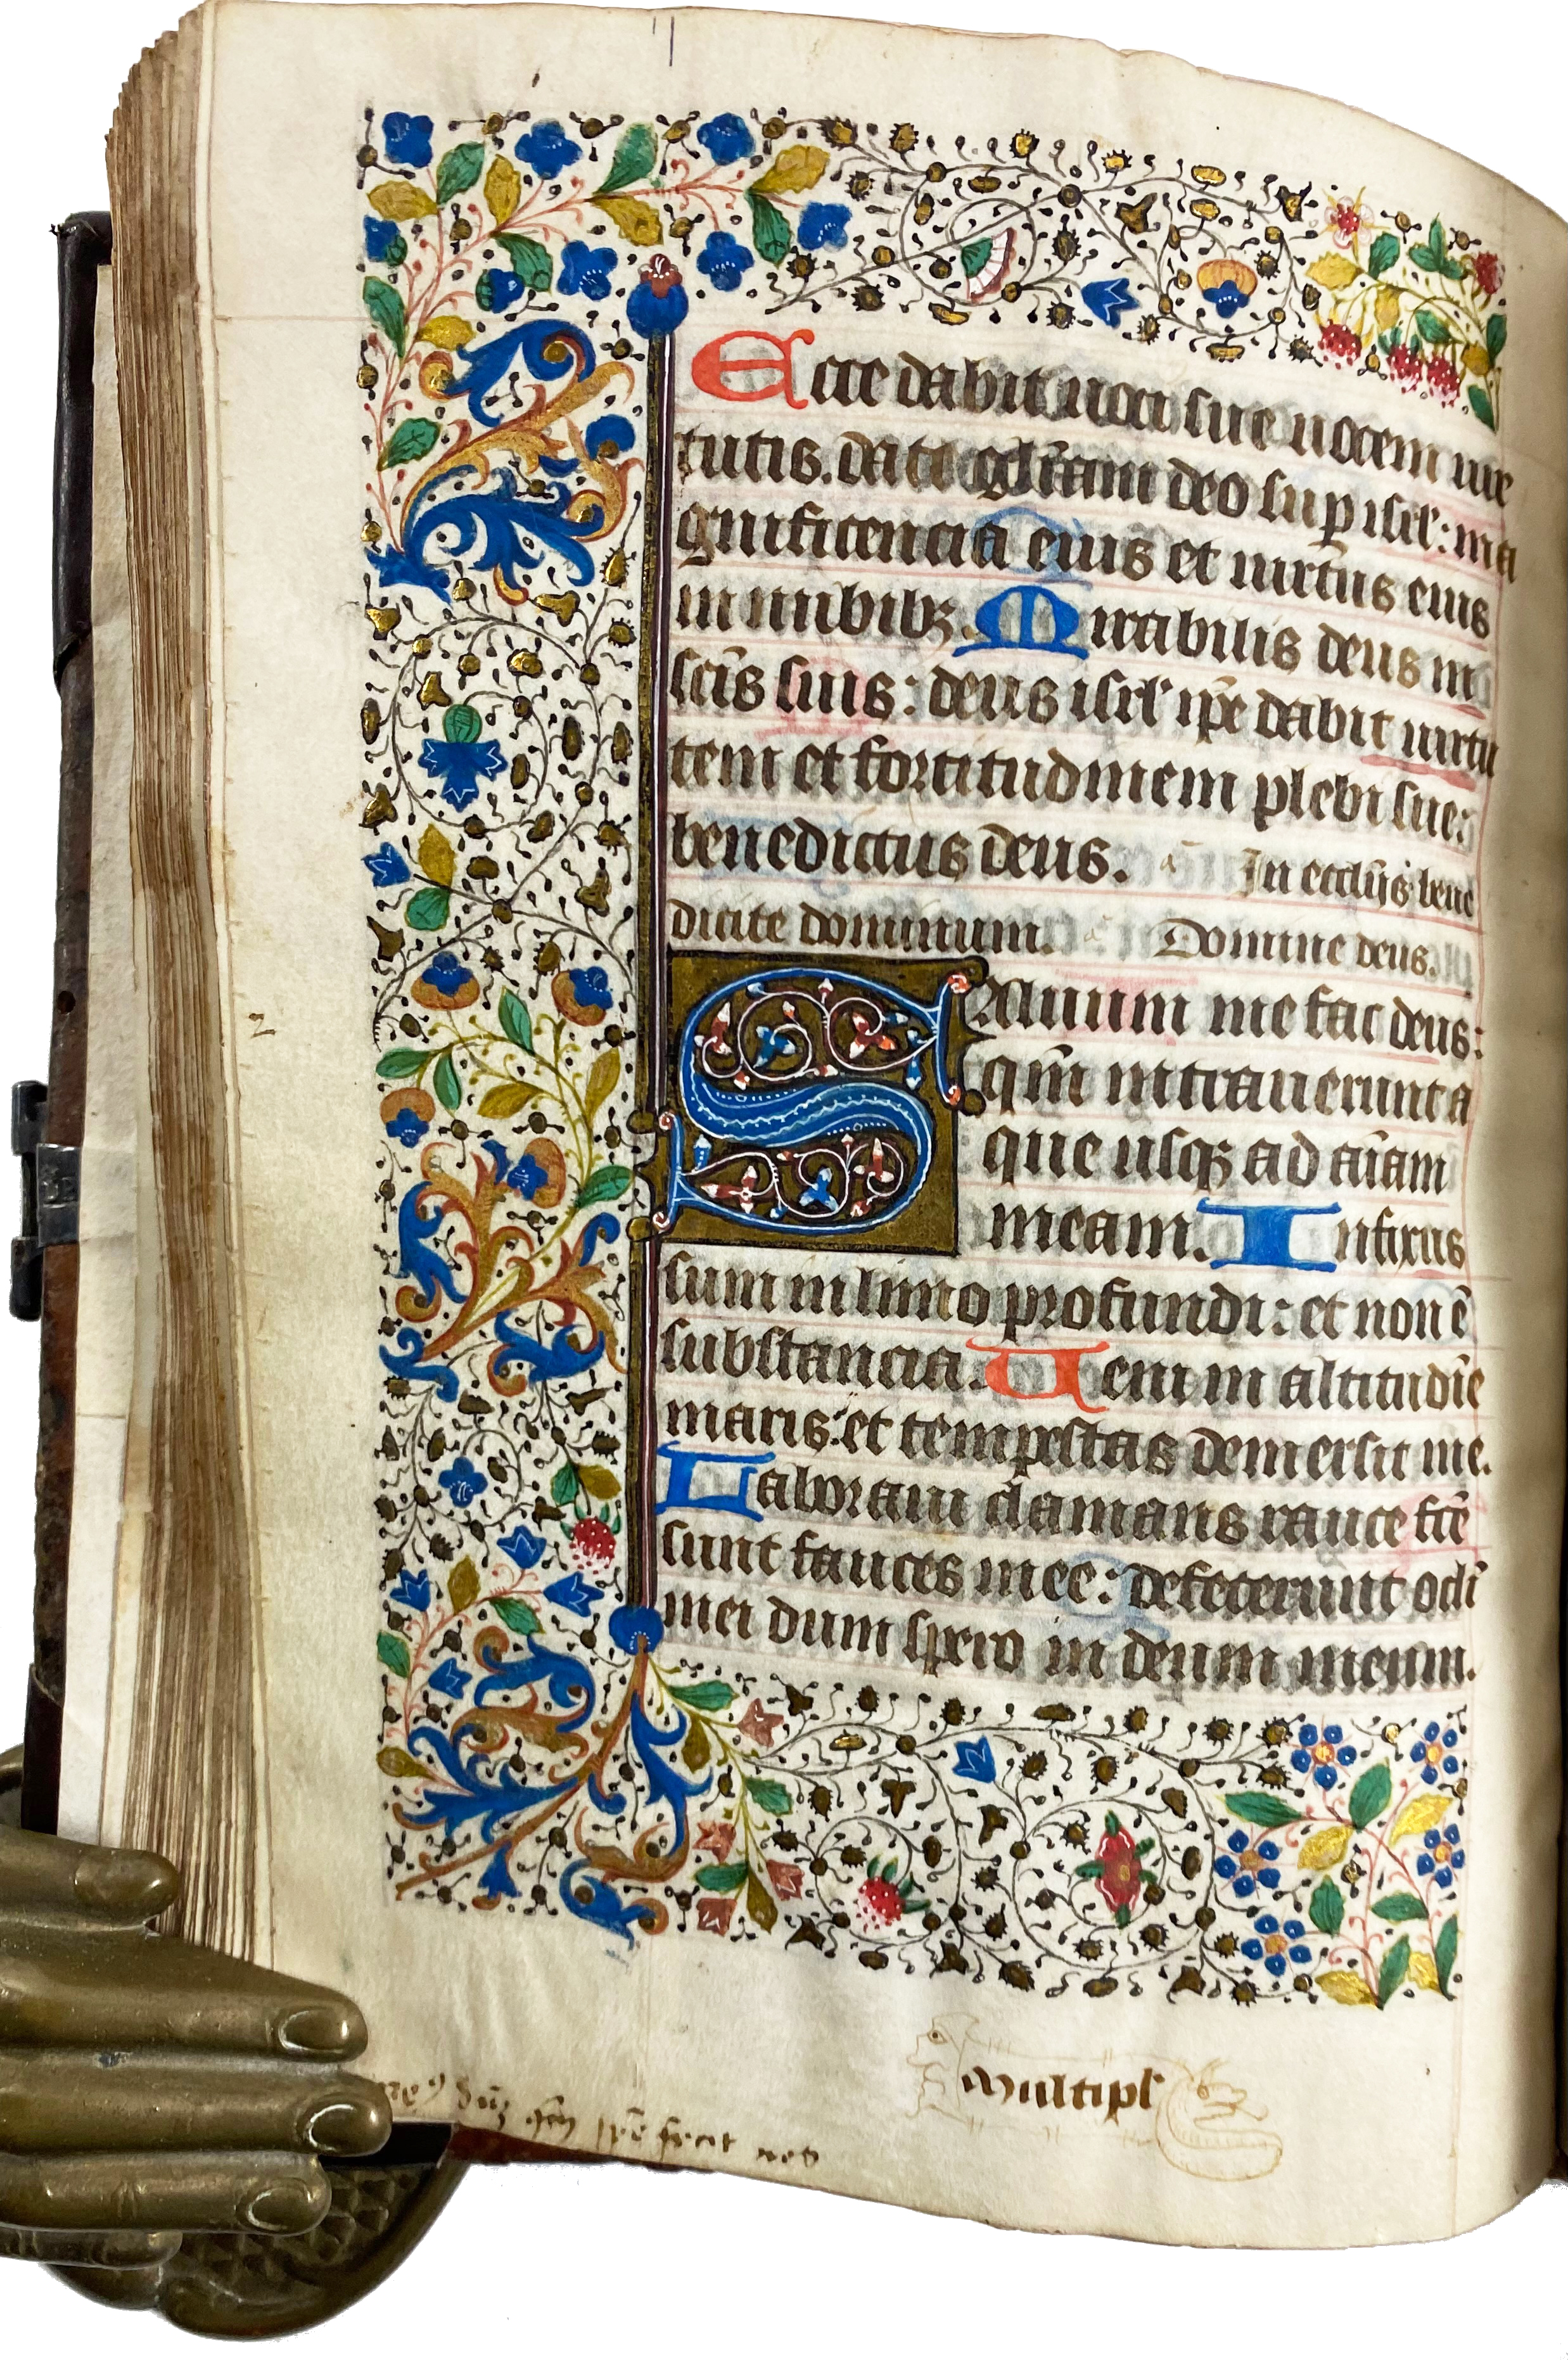 Ecce dabit uoci sue uocem uir
tutis. date gl̄iam deo sup isrl̄: ma
gnificencia eius et uirtus eius
in nubibꝫ. Mirabilis deus in
sc̄is suis: deus isrl̄ ip̄e dabit uirtu
tem et fortitudinem plebi sue:
benedictus deus. a᷒ In eccl̄ijs bene
dicite dominum. a᷒ Domine deus.
Saluum me fac deus:
qm̄ intrauerunt a
que usqꝫ ad aīam
meam. Infixus
sum in limo profundi: et non ē
substancia. Ueni in altitudīe
maris: et tempestas demersit me.
Laboraui clamans rauce fc̄e
sunt fauces mee: defecerunt oc̄li
mei dum spero in deum meum.
Multipl̄
fecit nos
2